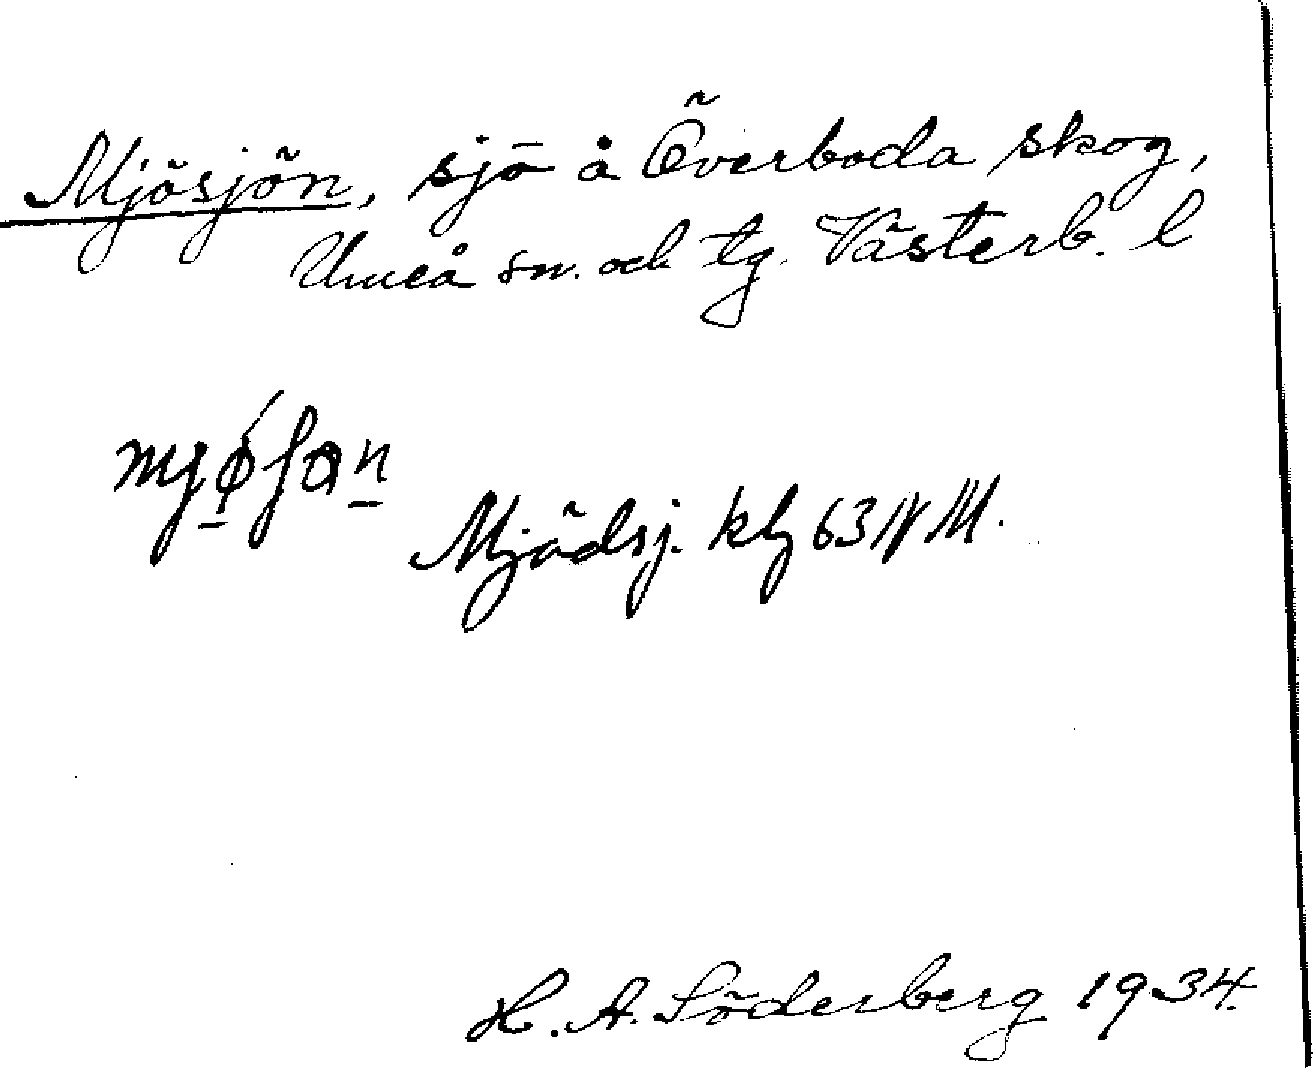 Mjösjön, sjö å Överboda skog,
Umeå sn. och tg. Västerb. l
Mjödsj. kbl 63 NV M.
H. A. Söderberg 1934.